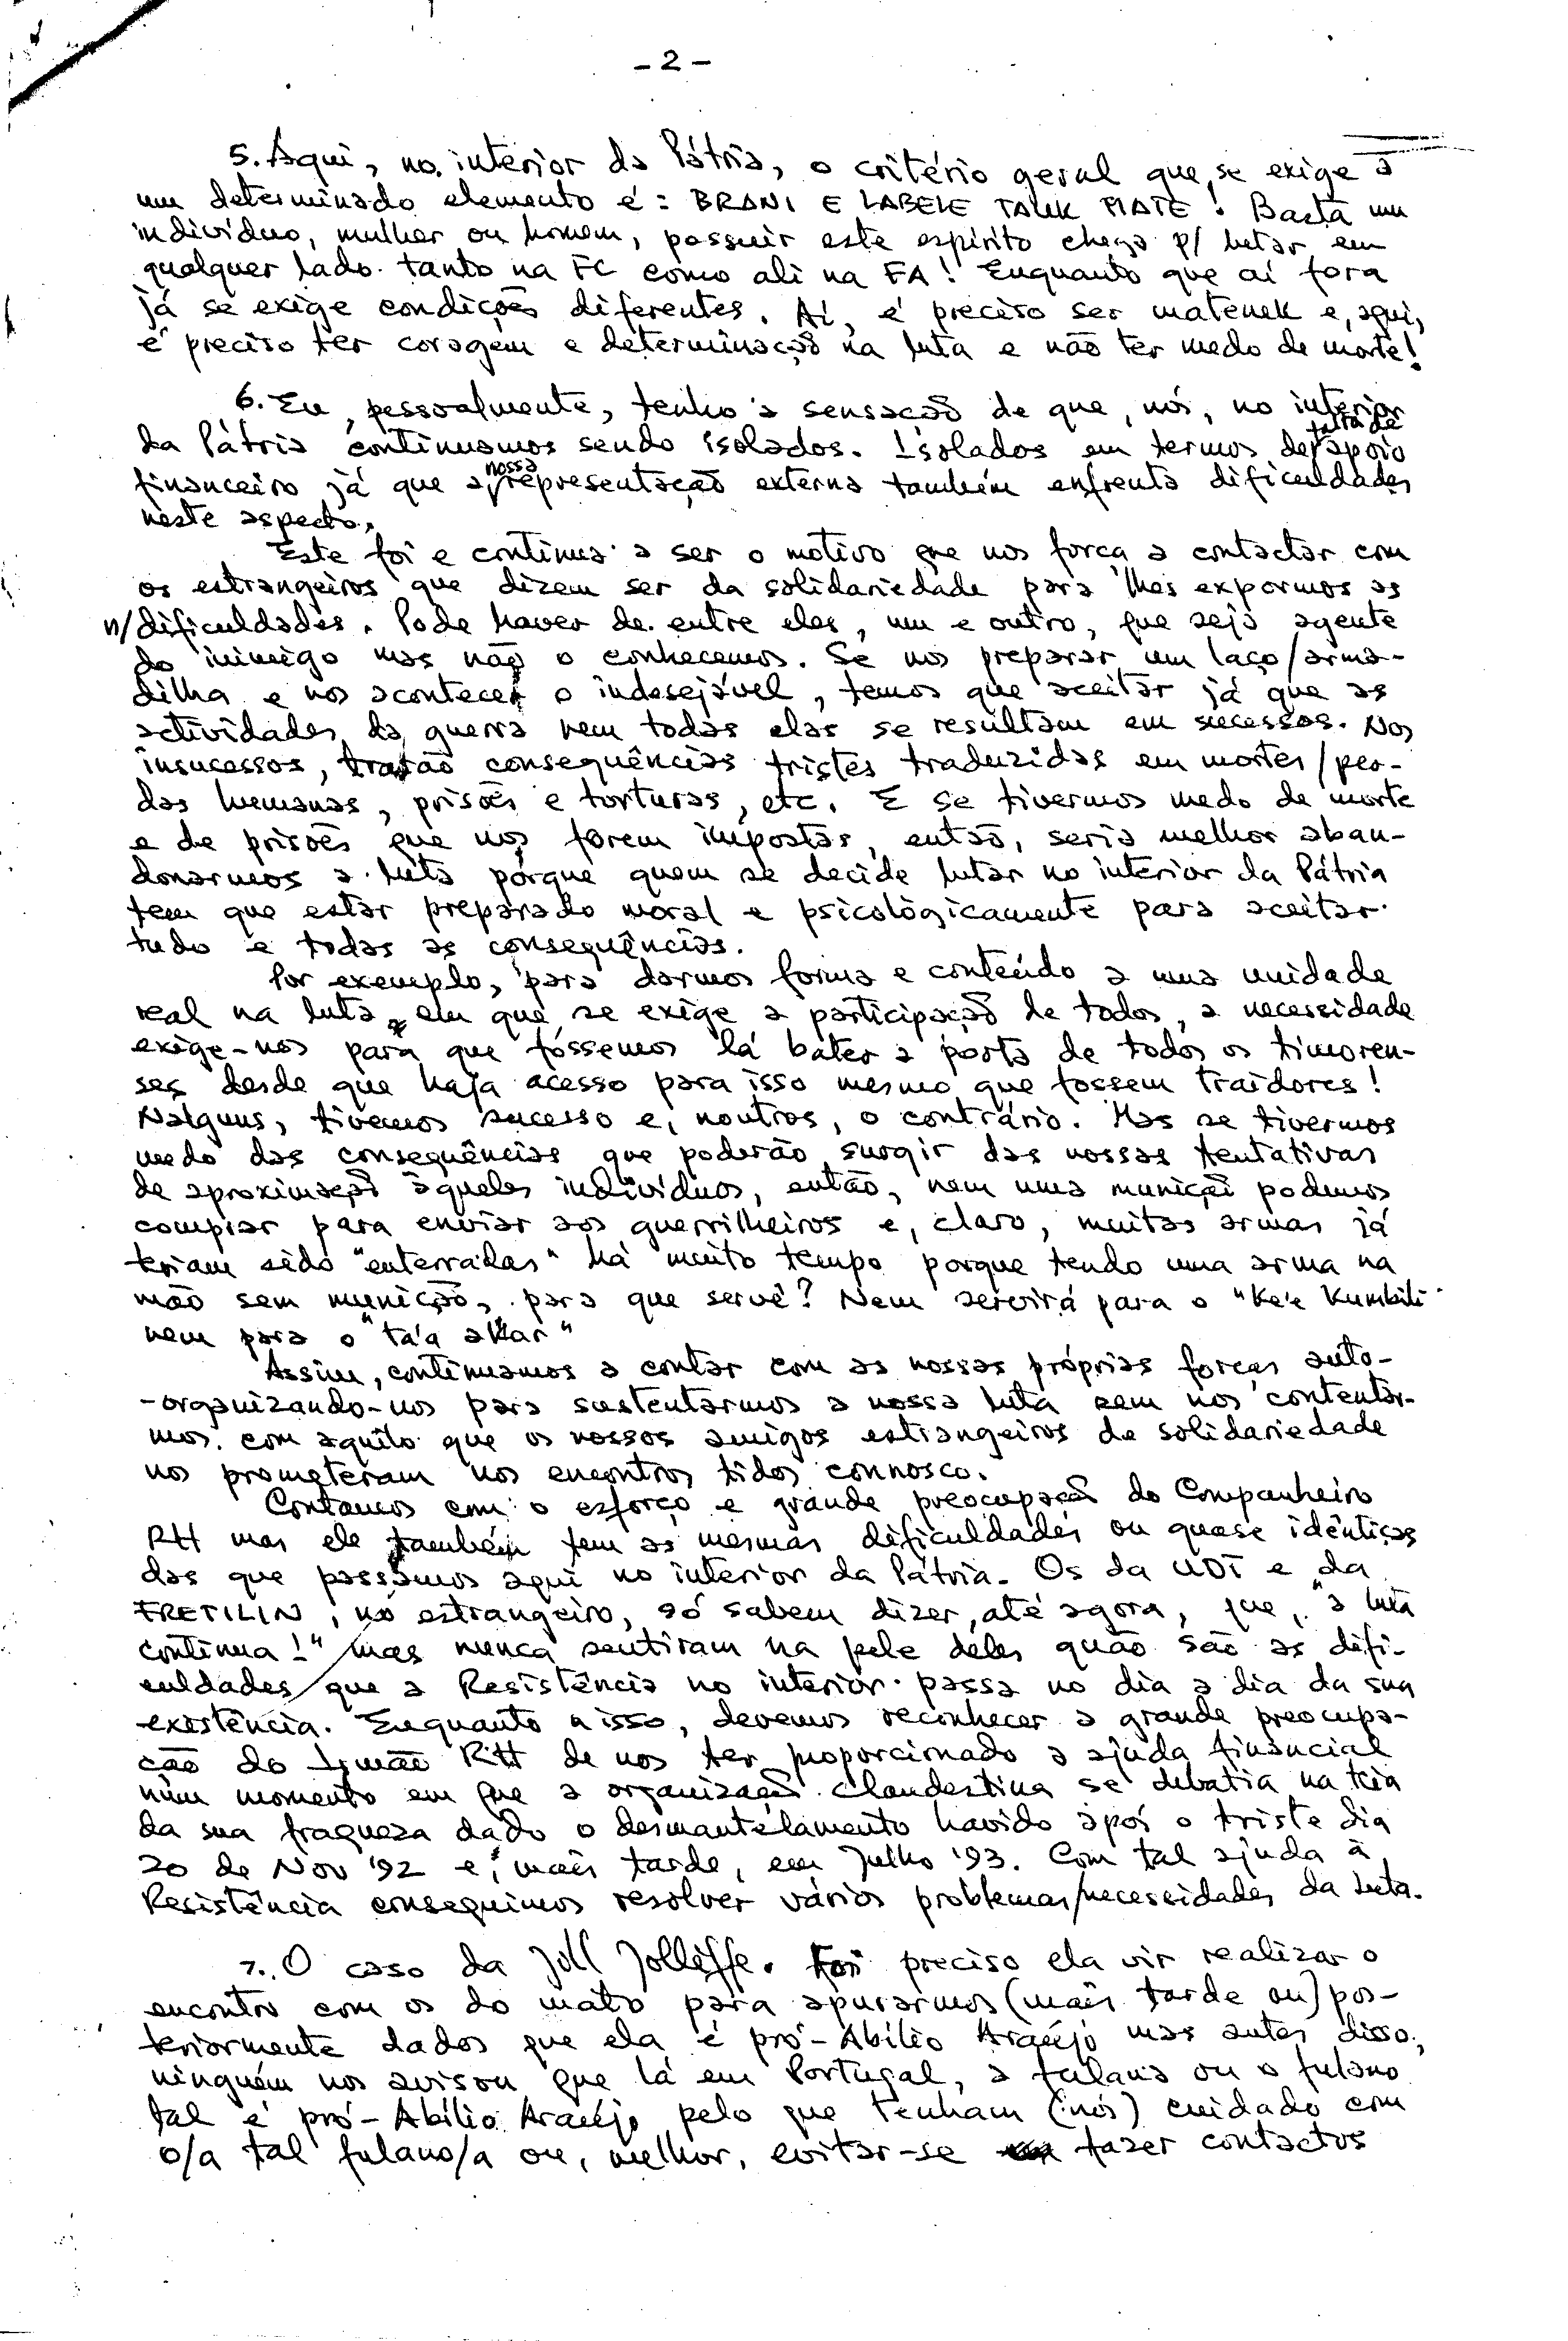 - 2 -
5. Aqui, no interior da Pátria, o critério geral que se exige a
um determinado elemento é: BRANI E LABELE TAUK MATE! Basta um
indivíduo, mulher ou homem, possuir este espírito chega p/ lutar em
qualquer lado tanto na FC como ali na FA! Enquanto que aí fora
já se exige condições diferentes. Aí, é preciso ser matenek e, aqui,
é preciso ter coragem e determinação na luta e não ter medo de morte!
6. Eu, pessoalmente, tenho a sensação de que, nós, no interior
da Pátria continuamos sendo isolados. Isolados em termos de falta de apoio
financeiro já que a nossa representação externa também enfrenta dificuldades
neste aspecto.
Este foi e continua a ser o motivo que nos força a contactar com
os estrangeiros que dizem ser da solidariedade para lhes expormos as
n/dificuldades. Pode haver de entre eles, um e outro, que seja agente
do inimigo mas não o conhecemos. Se nos preparar um laço/arma-
dilha e nos acontecer o indesejável, temos que aceitar já que as
actividades da guerra nem todas elas se resultam em sucessos. Nos
insucessos, trarão consequências tristes traduzidas em mortes/per-
das humanas, prisões e torturas, etc. E se tivermos medo de morte
e de prisões que nos forem impostas, então, seria melhor aban-
donarmos a luta porque quem se decide lutar no interior da Pátria
tem que estar preparado moral e psicológicamente para aceitar
tudo e todas as consequências.
Por exemplo, para darmos forma e conteúdo a uma unidade
real na luta em que se exige a participação de todos, a necessidade
exige-nos para que fôssemos lá bater a porta de todos os timoren-
ses desde que haja acesso para isso mesmo que fossem traidores!
Nalguns, tivemos sucesso e, noutros, o contrário. Mas se tivermos
medo das consequências que poderão surgir das nossas tentativas
de aproximação àqueles indivíduos, então, nem uma munição podemos
comprar para enviar aos guerrilheiros e, claro, muitas armas já
teriam sido "enterradas" há muito tempo porque tendo uma arma na
mão sem munição, para que serve? Nem servirá para o "ke'e kumbili"
nem para o "ta'a akar"
Assim, continuamos a contar com as nossas próprias forças auto-
-organizando-nos para sustentarmos a nossa luta sem nos contentar-
mos com aquilo que os nossos amigos estrangeiros de solidariedade
nos prometeram nos encontros tidos connosco.
Contamos com o esforço e grande preocupação do Companheiro
RH mas ele também tem as mesmas dificuldades ou quase idênticas
das que passamos aqui no interior da Pátria. Os da UDT e da
FRETILIN, no estrangeiro, só sabem dizer, até agora, que, "a luta
continua!" mas nunca sentiram na pele deles quão são as difi-
culdades que a Resistência no interior passa no dia a dia da sua
existência. Enquanto a isso, devemos reconhecer a grande preocupa-
ção do Irmão RH de nos ter proporcionado a ajuda financial
num momento em que a organização clandestina se debatia na teia
da sua fraqueza dado o desmantelamento havido após o triste dia
20 de Nov '92 e, mais tarde, em Julho '93. Com tal ajuda à
Resistência conseguimos resolver vários problemas/necessidades da luta.
7. O caso da Jill Jolliffe. Foi preciso ela vir realizar o
encontro com os do mato para apurarmos (mais tarde ou) pos-
teriormente dados que ela é pró-Abílio Araújo mas antes disso,
ninguém nos avisou que lá em Portugal, a fulana ou o fulano
tal é pró-Abílio Araújo pelo que tenham (nós) cuidado com
o/a tal fulano/a ou, melhor, evitar-se fazer contactos